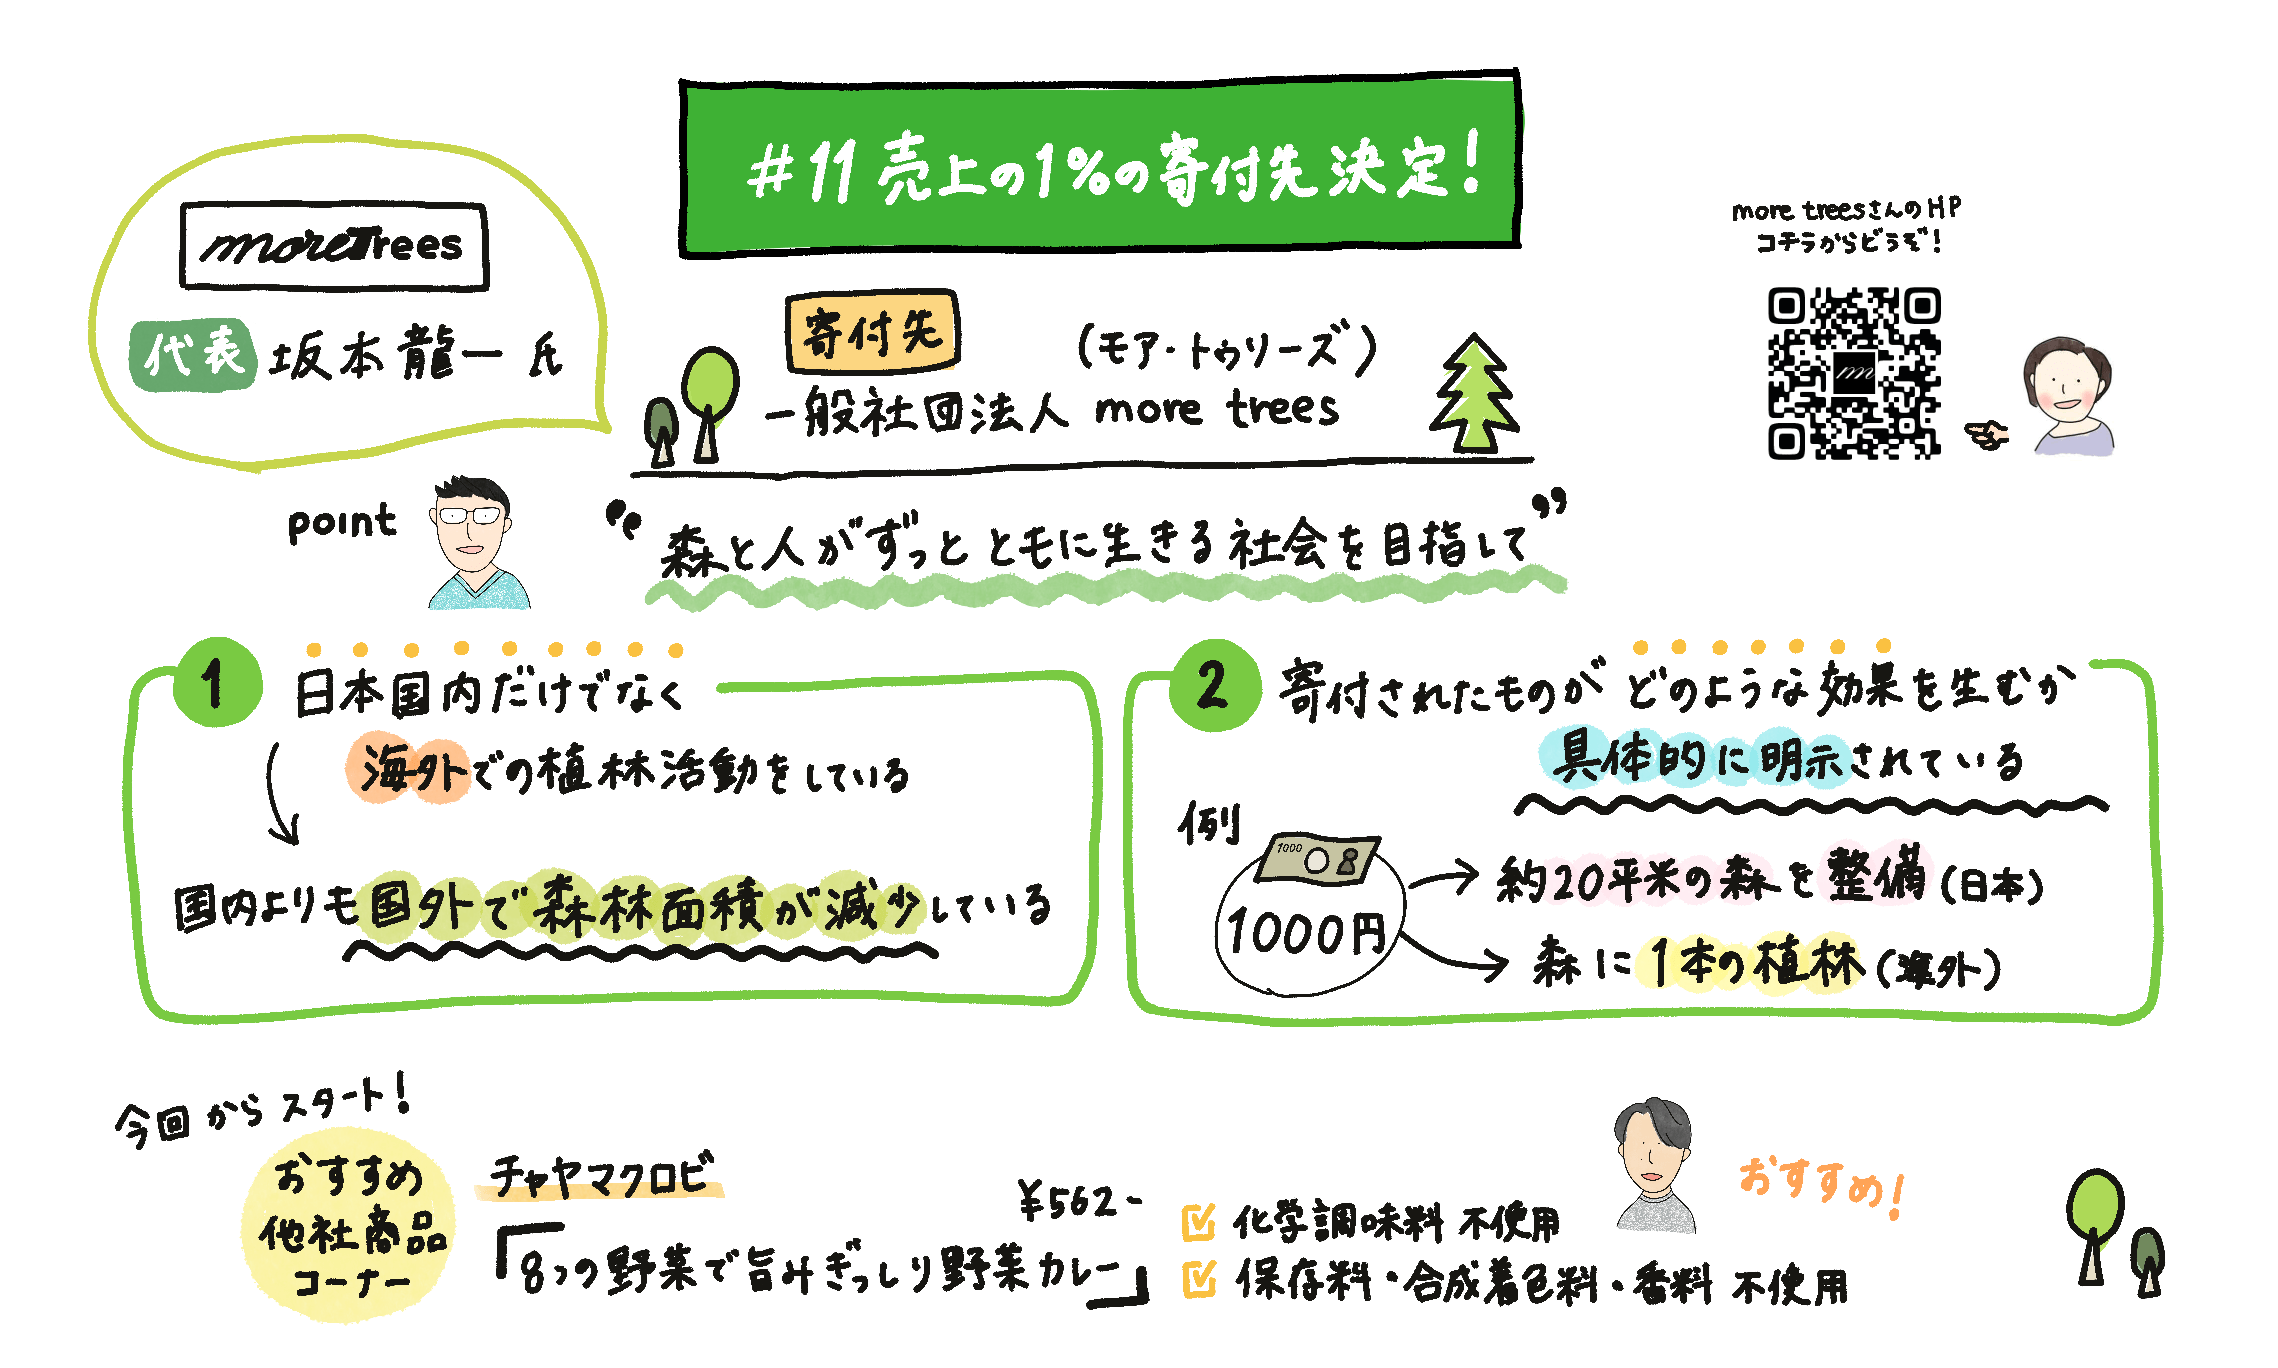 #11 売上の1%の寄付先決定!
moreTrees
代表 坂本龍一 氏
寄付先
(モア・トゥリーズ)
一般社団法人 more trees
more treesさんのHP
コチラからどうぞ!
m
point
“森と人がずっと ともに生きる社会を目指して”
1 日本国内だけでなく
海外での植林活動をしている
国内よりも国外で森林面積が減少している
2 寄付されたものが どのような効果を生むか
具体的に明示されている
例
1000
1000円
約20平米の森を整備(日本)
森に1本の植林(海外)
今回からスタート!
おすすめ
他社商品
コーナー
チャヤマクロビ
¥562-
「8つの野菜で旨みぎっしり野菜カレー」
化学調味料 不使用
保存料・合成着色料・香料 不使用
おすすめ!